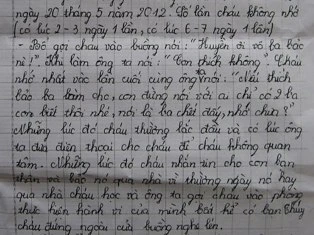 ngày 20 tháng 5 năm 2012. Số lần cháu không nhớ
(có lúc 2-3 ngày 1 lần, có lúc 6-7 ngày 1 lần)
- Bố gọi cháu vào buồng nói: "Huyền ơi vô ba bảo
ni!". Khi làm ông ta nói: "Con thích không". Cháu
nhớ nhất vào lần cuối cùng ông nói: "Nếu thích
bảo ba làm cho, con đừng nói với ai chỉ có 2 ba
con biết thôi nhé, nói là ba chết đấy, nhớ chưa?"
Những lúc đó cháu thường lắc đầu và có lúc ông
ta đưa điện thoại cho cháu để cháu không quan
tâm. Những lúc đó cháu nhắn tin cho con bạn
thân và bảo nó qua nhà vì thường ngày nó hay
qua nhà cháu học và ông ta gọi cháu vào phòng
thực hiện hành vi của mình bất kể có bạn Thủy
cháu đứng ngoài cửa buồng nghe lén.